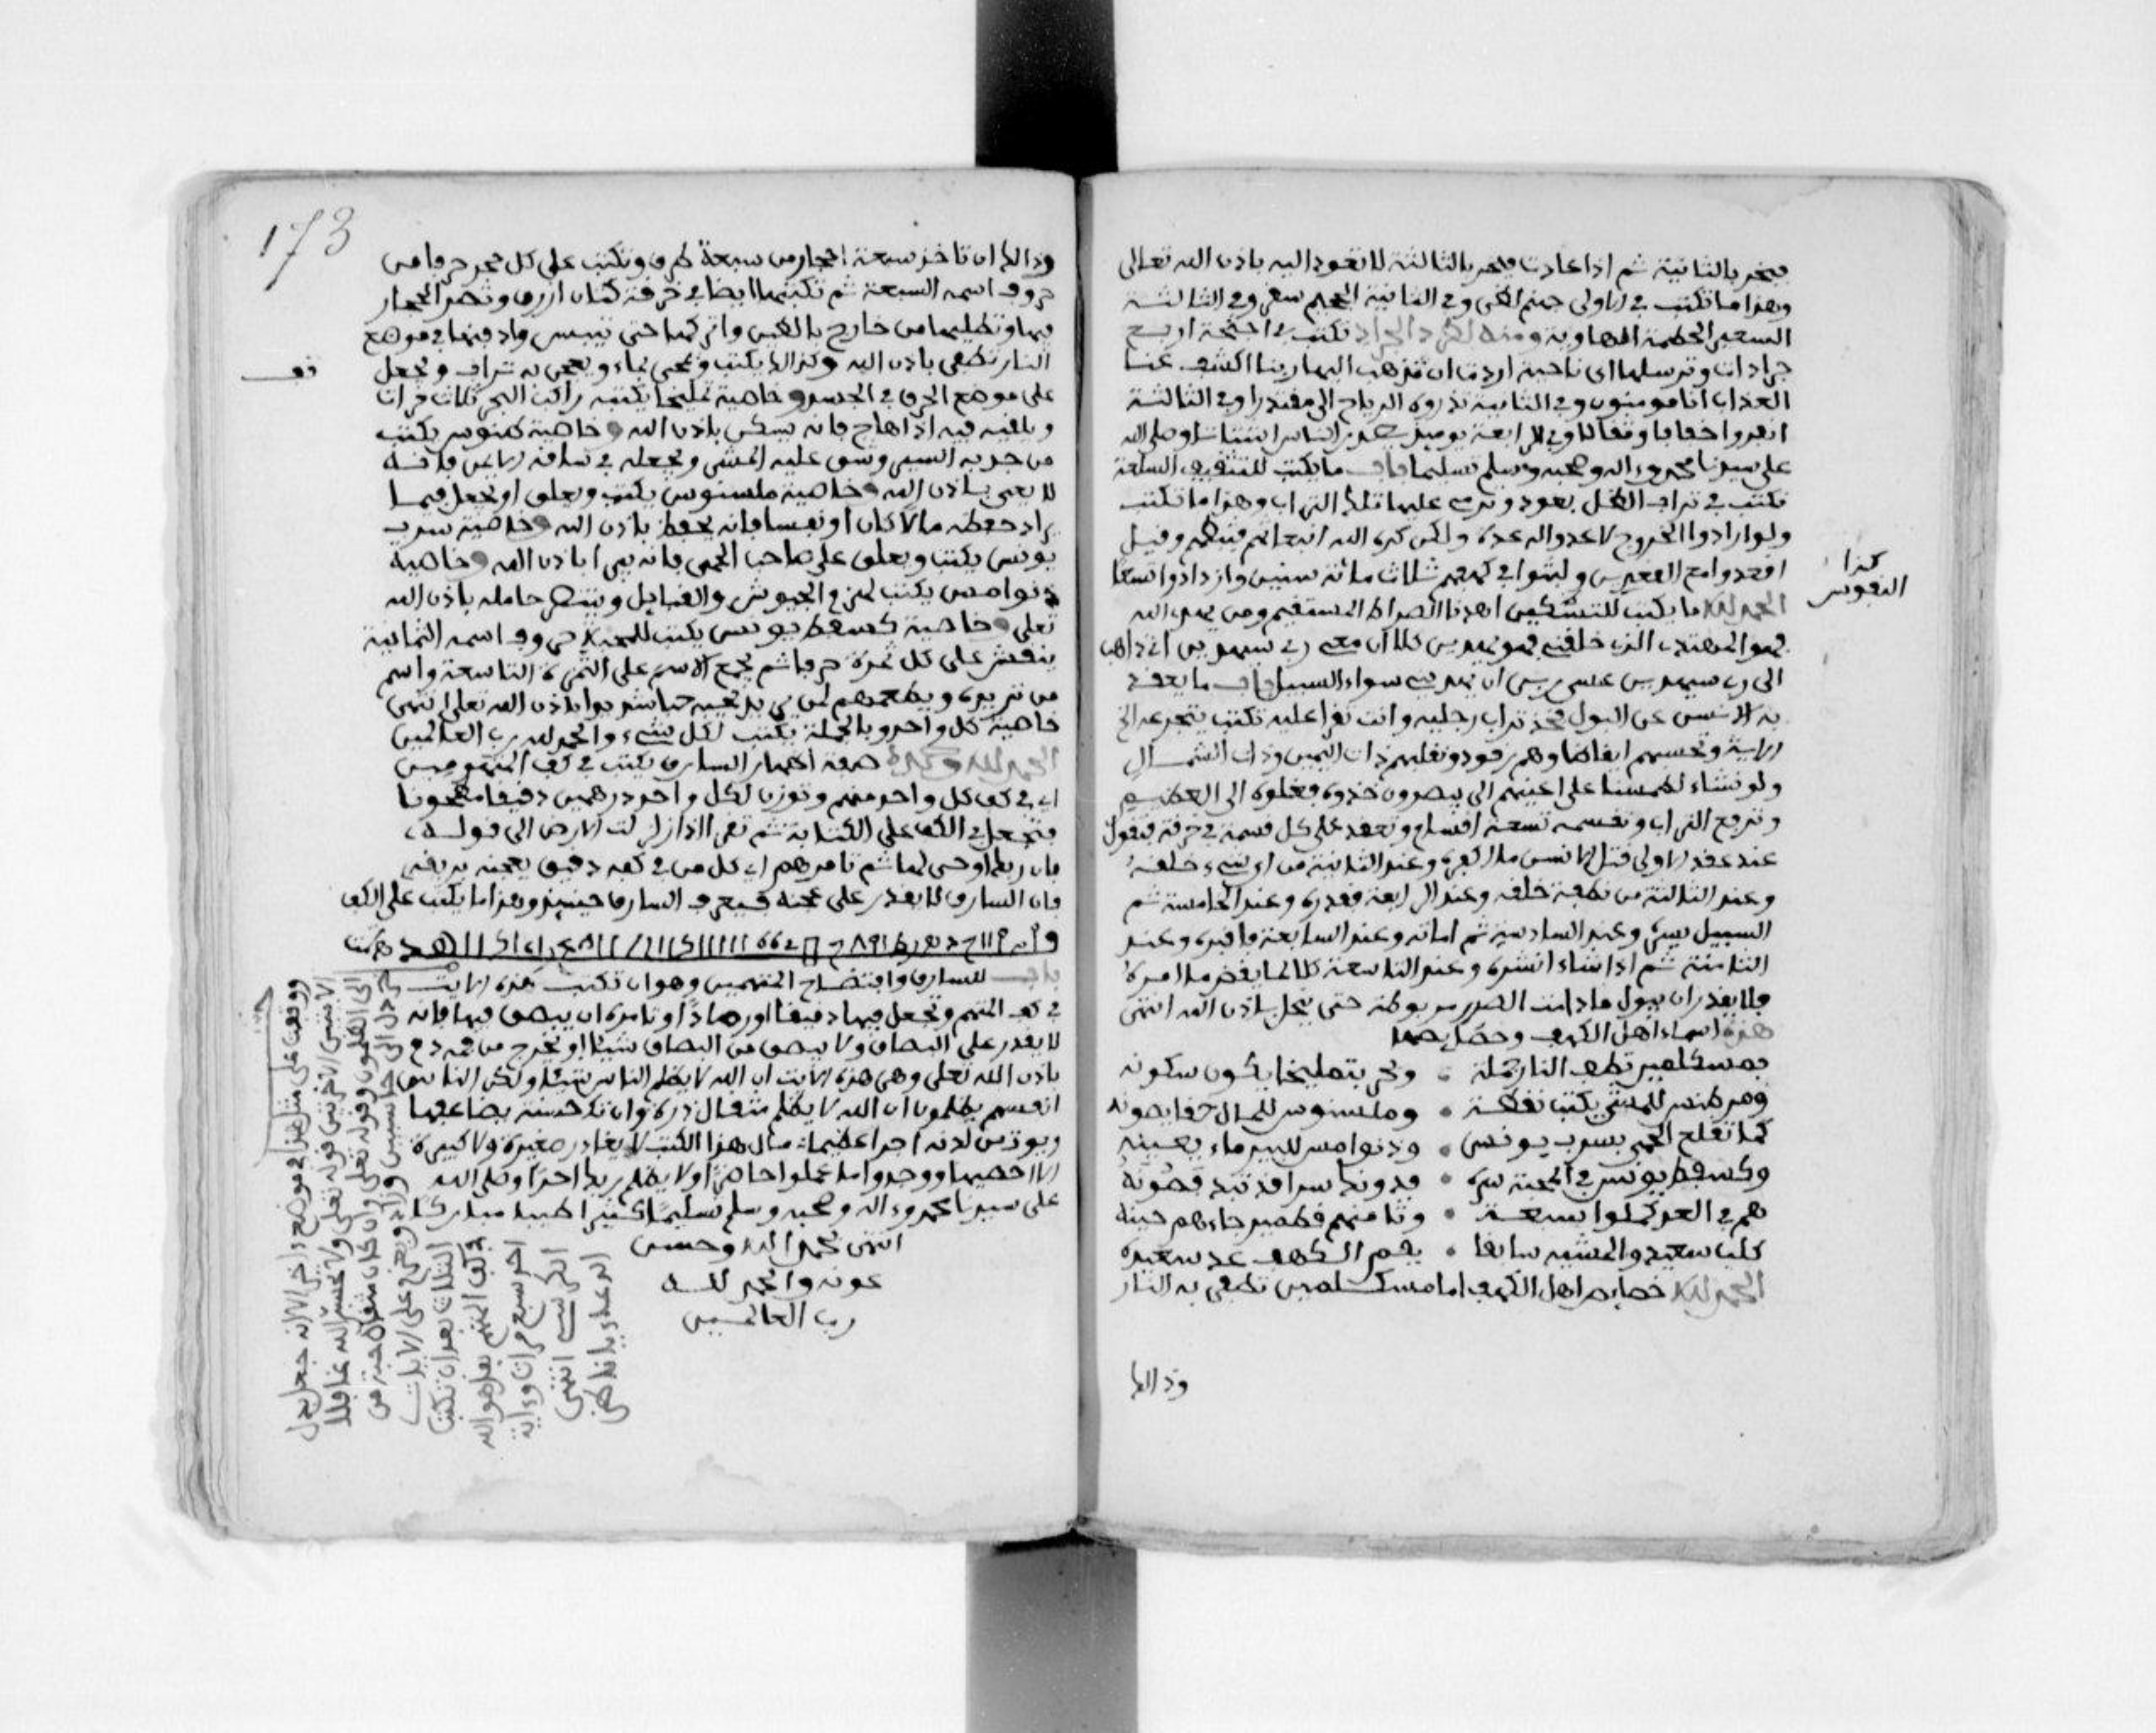 فيبخر بالثانية ثم اذا عادت فيبخر بالثالثة لا تعود اليه باذن الله تعالى
وهذا ما تكتب في الاولى جهنم لظى وفي الثانية الجحيم سقر وفي الثالثة
السعير الحطمة الهاوية ومنه لطرد الجراد تكتب في اجنحة اربع
جرادات وترسلها اى ناحية اردت ان تذهب اليها ربنا اكشف عنا
العذاب انا مومنون وفي الثانية تذروه الرياح الى مقتدرا وفي الثالثة
انفروا خفافا وثقالا وفي الرابعة يوميذ يصدر الناس اشتاتا وصلى الله
على سيدنا محمد وءاله وصحبه وسلم تسليما باب ما يكتب للتثقيف السلعة
تكتب في تراب الظل بعود وترمي عليها تلك التراب وهذا ما تكتب
ولو ارادوا الخروج لاعدوا له عدة ولكن كره الله انبعاثهم فثبطهم وقيل
اقعدوا مع القعدين ولبثوا في كهفهم ثلاث مائة سنين وازدادوا تسعا
الحمد لله ما يكتب للتشكين اهدنا الصراط المستقيم ومن يهد الله
فهو المهتد الذي خلقني فهو يهدين كلا ان معي ربي سيهدين اني ذاهب
الى ربي سيهدين عسى ربي ان يهديني سواء السبيل باب ما يعقد
به الانسن عن البول فخذ تراب رجليه وانت تقرا عليه تكتب يتجرعه الخ
الاية وتحسبهم ايقاظا وهم رقود ونقلبهم ذات اليمين وذات الشمال
ولو نشاء لطمسنا على اعينهم الى يبصرون خذوه فغلوه الى العظيم
وترفع التراب وتقسمه تسعة اقسام وتعقد على كل قسمة في خرقة فتقول
عند عقد الاولى قتل الانسن ما اكفره وعند الثانية من اي شيء خلقه
وعند الثالثة من نطفة خلقه وعند الرابعة فقدره وعند الخامسة ثم
السبيل يسره وعند السادسة ثم اماته وعند السابعة فاقبره وعند
الثامنة ثم اذا شاء انشره وعند التاسعة كلا لما يقض ما امره
فلا يقدر ان يبول ما دامت الصرر مربوطة حتى ينحل باذن الله انتهى
هذه اسماء اهل الكهف وخصايصها
بمسكلمين تطف النار جملة • وبحر بتمليخا يكون سكونه
ومرطنس للمشي يكتب نفحة • وملسنوس للمال حفا يصونه
كما تقلع الحمى بسرب يونس • وذنوامس للبير ماء يعينه
وكسفط يونس في المحبة سره • فدونك اسرا قد تبد قصونه
هم في العد كملوا سبعة • وثامنهم قطمير جاءهم حينه
كلب سعيد والمشبه سابقا • بقم الكهف عد سعيده
الحمد لله خصايص اهل الكهف اما مسكسلمين تطفى به النار
وذالك
كذا
النفوس
173
وذالك ان تاخذ سبعة احجار من سبعة طرق وتكتب على كل حجر حرفا من
حروف اسمه السبعة ثم تكتبها ايضا في خرقة كتان ازرق وتصر الحجار
فيها وتطليها من خارج بالطين واتركها حتى تيبس وادفنها في موضع
النار تطفى باذن الله وكذالك يكتب وتمحى بماء ويعجن به تراب وتجعل
على موضع الحرق في الجسد وخاصية تمليخا يكتبه راكب البحر ثلاث مرات
ويلقيه فيه اذا هاج فانه يسكن باذن الله وخاصية
من جد به السير وشق عليه المشي ويجعله في ساقه الايمن فانه
لا يعيى باذن الله وخاصية ملسنوس يكتب ويعلق او تجعل فيما
يراد حفظه مالا كان او نفسا فانه يحفظ باذن الله وخاصية سرب
يونس يكتب ويعلق على صاحب الحمى فانه يبرا باذن الله وخاصية
ذنوامس يكتب لهزم الجيوش والقبايل وينصر حامله باذن الله
تعلى وخاصية كسفط يونس يكتب للمحبة حروف اسمه الثمانية
ينقش على كل ثمرة حرفا ثم يجمع الاسم على الثمرة التاسعة واسم
من تريده ويطعمهم لمن يريد يحبه حبا شديدا باذن الله تعلى انتهى
خاصية كل واحد وبالجملة يكتب لكل شيء والحمد لله رب العالمين
الحمد لله وحده صفة اظهار السارق يكتب في كف المتهومين
اي في كف كل واحد منهم وتوزن لكل واحد درهمين دقيقا مطحونا
فتجعل في الكف على الكتابة ثم تقرا اذا زلزلت الارض الى قوله
بان ربك اوحى لها ثم تامرهم اي كل من في كفه دقيق يعجنه بريقه
فان السارق لا يقدر على عجنه فيعرف السارق حينيذ وهذا ما يكتب على الكف
باب للسارق وافتضاح المتهمين وهو ان تكتب هذه الايت
في كف المتهم وتجعل فيها دقيقا او رمادا وتامره ان يبصق فيها فانه
لا يقدر على البصاق ولا يبصق من البصاق شيئا او يخرج من فمه دم
باذن الله تعلى وهي هذه الايت ان الله لا يظلم الناس شيئا ولكن الناس
انفسهم يظلمون ان الله لا يظلم مثقال ذرة وان تك حسنة يضاعفها
ويوت من لدنه اجرا عظيما مال هذا الكتب لا يغادر صغيرة ولا كبيرة
الا احصيها ووجدوا ما عملوا حاضرا ولا يظلم ربك احدا وصلى الله
على سيدنا محمد وءاله وصحبه وسلم تسليما كثيرا طيبا مباركا
انتهى بحمد الله وحسن
عونه والحمد لله
رب العالمين
ووقفت على مثل هذا في موضع اخر الا انه جعل بدل
الايتين الاخرتين قوله تعلى ولا تحسبن الله غافلا
الى الظلمون وقوله تعلى وان كان مثقال حبة من
خردل الى حاسبين وزاد ويقرا على الايات
الثلاث بعد ان تكتب
في كف المتهم بقل هو الله
احد سبع مرات وءاية
الكرسي انتهى